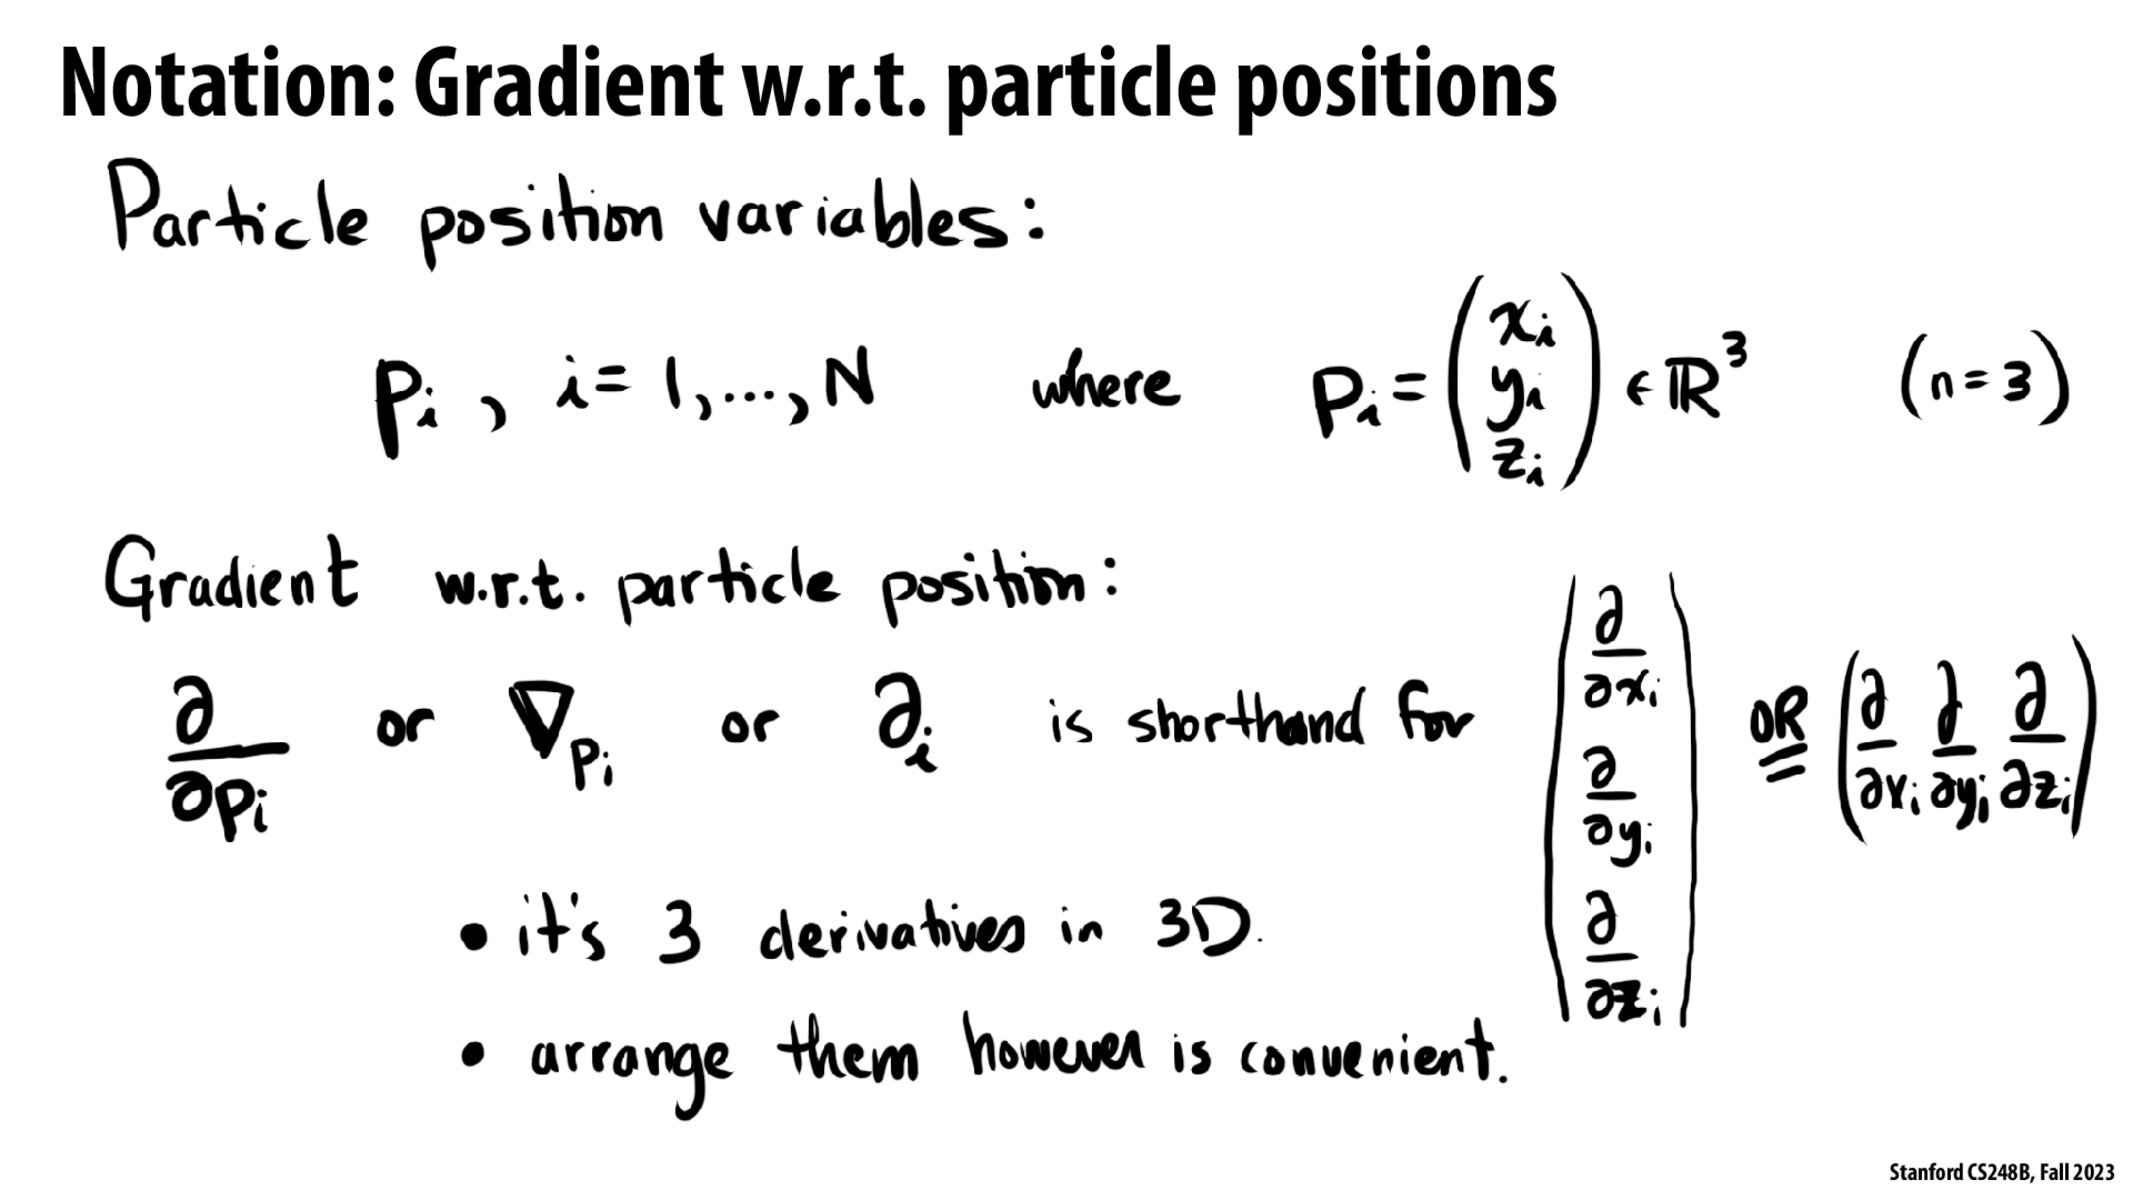 Notation: Gradient w.r.t. particle positions
Particle position variables:
pᵢ , i = 1,...,N where pᵢ = (xᵢ yᵢ zᵢ) ∈ ℝ³ (n=3)
Gradient w.r.t. particle position:
∂/∂pᵢ or ∇pᵢ or ∂ᵢ is shorthand for (∂/∂xᵢ ∂/∂yᵢ ∂/∂zᵢ) OR (∂/∂xᵢ ∂/∂yᵢ ∂/∂zᵢ)
• it's 3 derivatives in 3D.
• arrange them however is convenient.
Stanford CS248B, Fall 2023